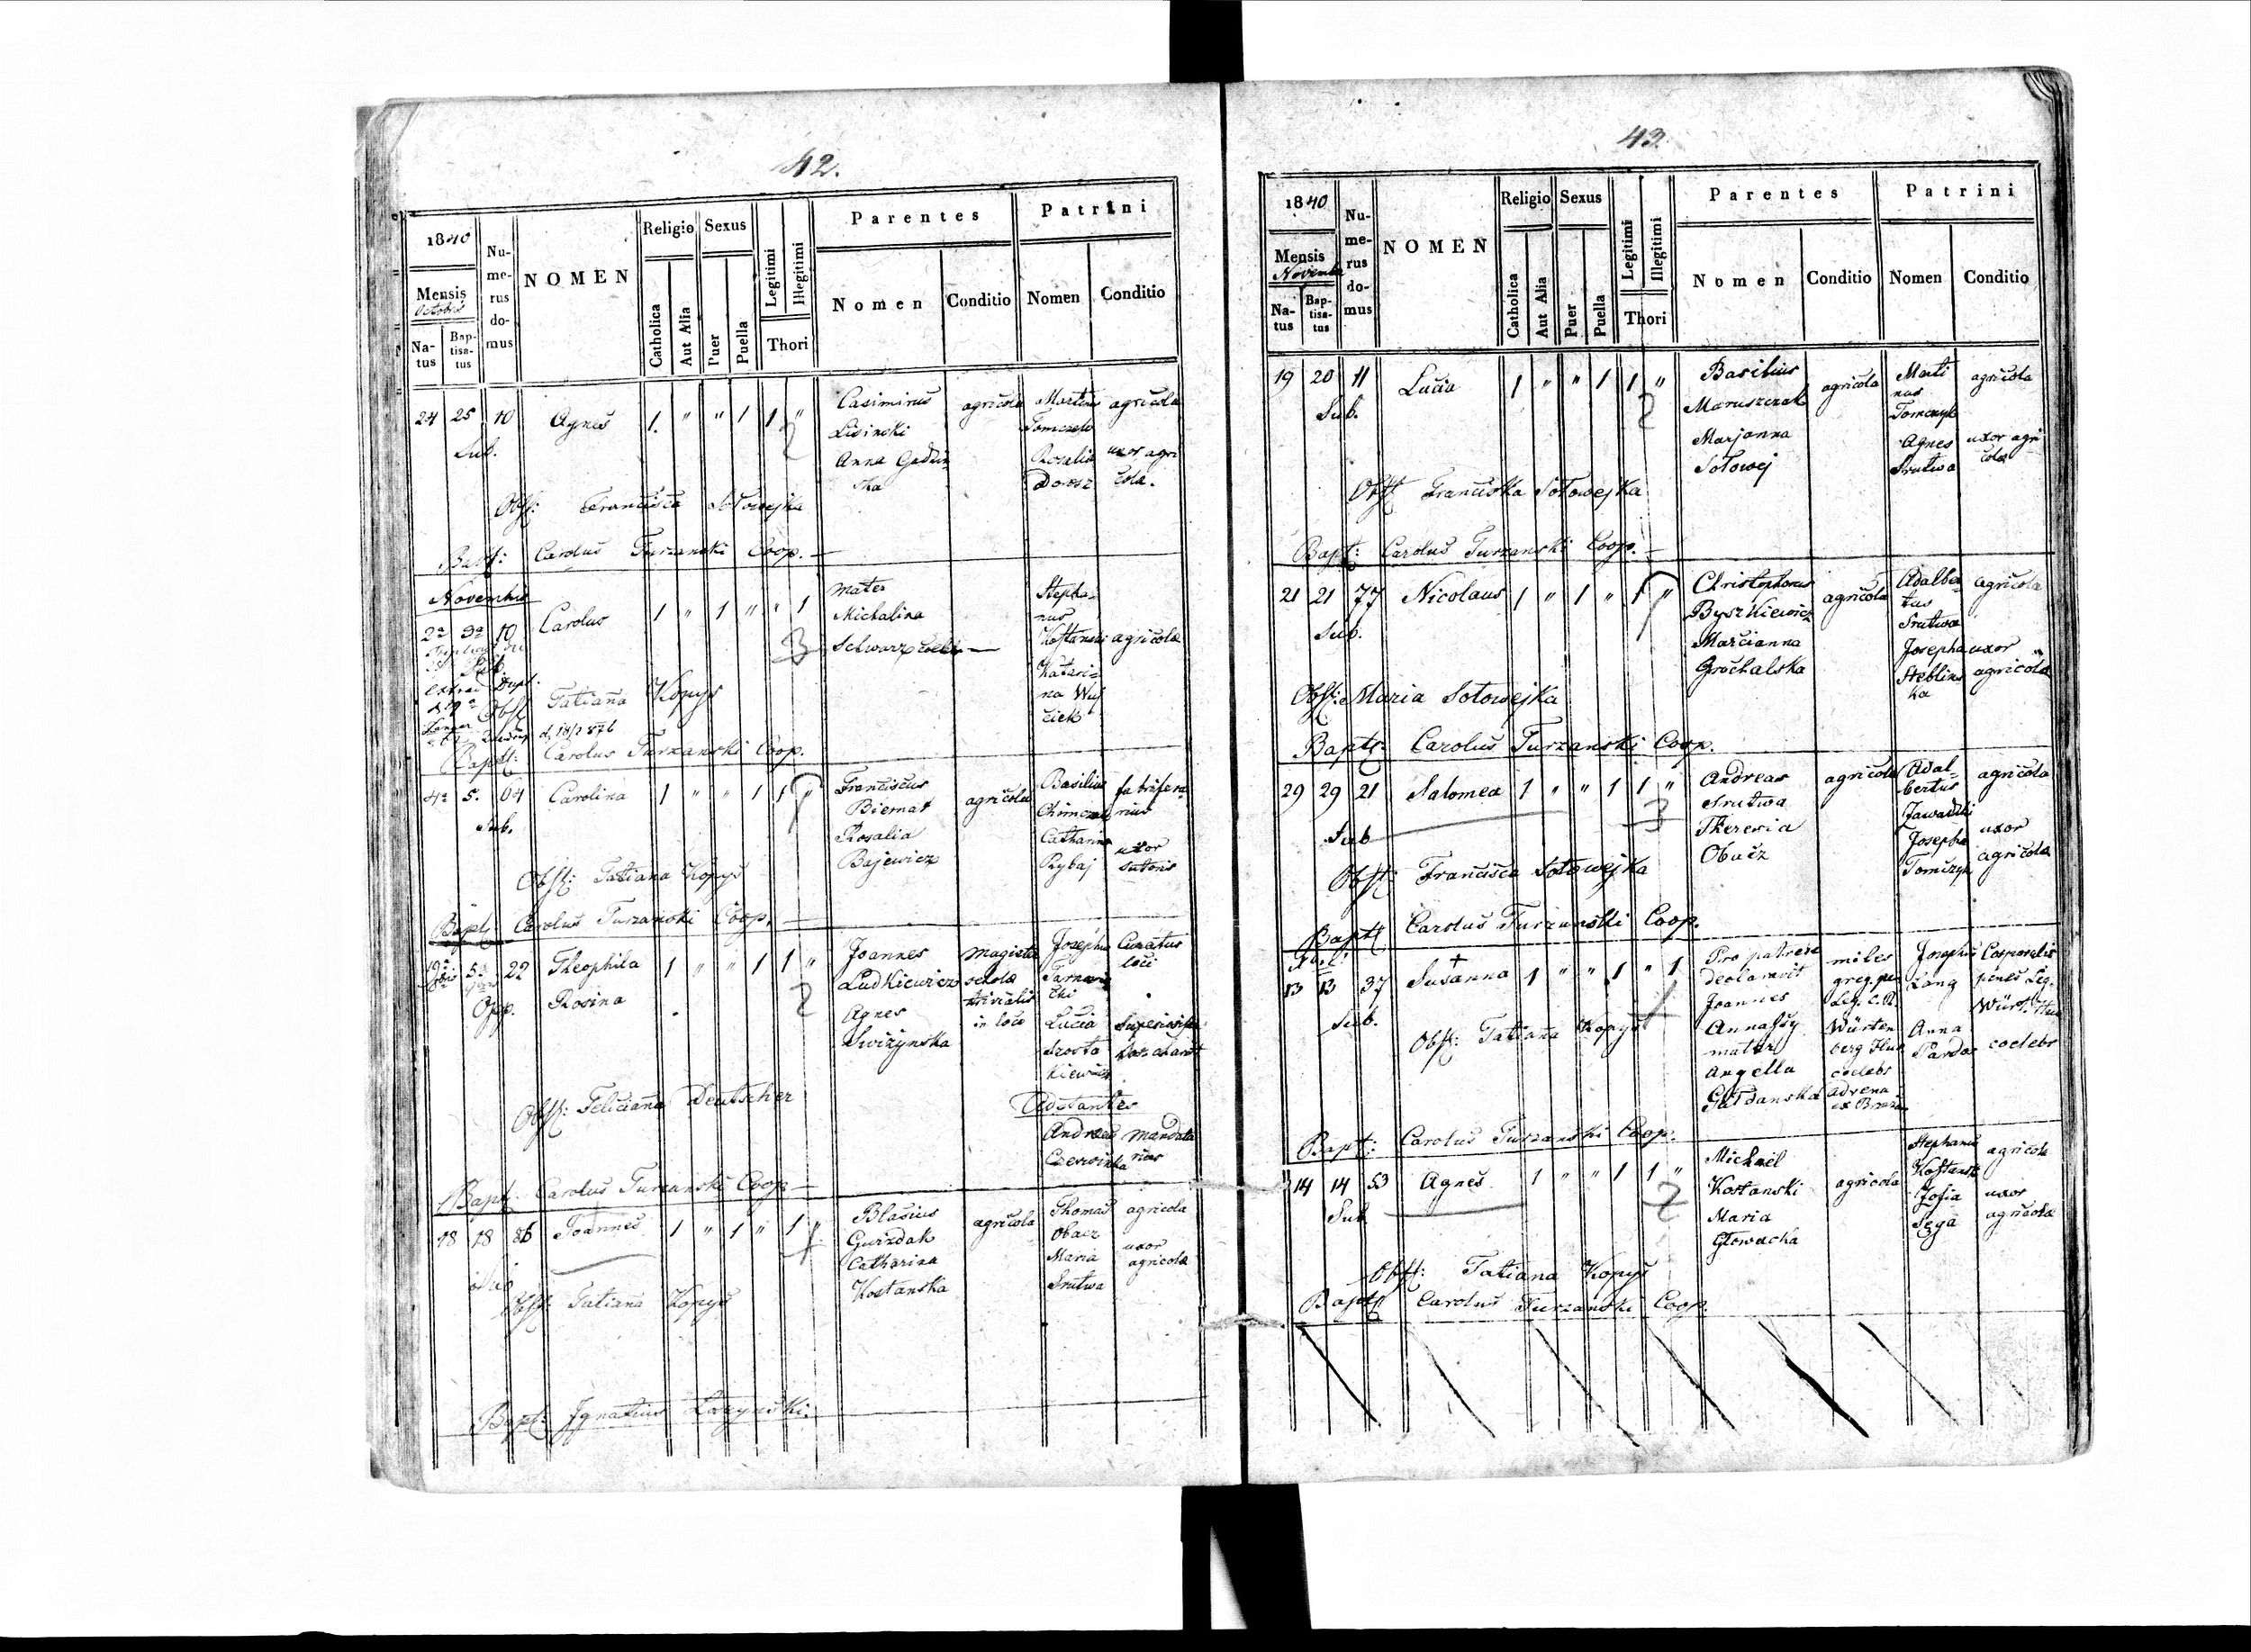 42.
1840
Mensis
Octobris
Na-
tus
Bap-
tisa-
tus
Nu-
me-
rus
do-
mus
NOMEN
Religio
Catholica
Aut Alia
Sexus
Puer
Puella
Legitimi
Illegitimi
Thori
Parentes
Nomen
Conditio
Patrini
Nomen
Conditio
24 25 10 Agnes 1. " " 1 1 "
Sub.
2
Casimirus
Lisinski
Anna
agricola
Martinus
Rosalia
Dorosz
agricola
uxor agri
cola.
Obst: Francisca Sołowejka
Bapt: Carolus Turzanski Coop.
Novembris
10 Carolus 1 " 1 " " 1
3
mater
Michalina
Stepha-
nus
Kostanski
Katari-
na Wuj
cick
agricola
Obst Tatiana Kopys
d. 18/2 876
Bapt: Carolus Turzanski Coop.
4a 5. 64 Carolina 1 " " 1 1 "
Sub.
Franciscus
Biernat
Rosalia
Bajewicz
agricola
Basilius
Catharina
Rybaj
uxor
sutoris
Obst: Tatiana Kopys
Bapt Carolus Turzanski Coop.
22 Theophila 1 " " 1 1 "
Opp. Rosina
2
Joannes
Ludkiewicz
Agnes
Swizynska
Magister
scholae
trivialis
in loco
Josephus
Tarnawi
cki
Lucia
Szosta
kiewicz
Curatus
loci
Obst: Feliciana Deutscher
Adstantes
Andreas
Czerwinka
mandata
rius
Bapt Carolus Turzanski Coop
18 18 86 Joannes 1 " 1 " 1 "
Blasius
Gwizdak
Catharina
Kostanska
agricola
Thomas
Obacz
Maria
Srutwa
agricola
uxor
agricola
Obst: Tatiana Kopys
Bapt: Ignatius Łozynski.
43.
1840
Mensis
Novembr
Na-
tus
Bap-
tisa-
tus
Nu-
me-
rus
do-
mus
NOMEN
Religio
Catholica
Aut Alia
Sexus
Puer
Puella
Legitimi
Illegitimi
Thori
Parentes
Nomen
Conditio
Patrini
Nomen
Conditio
19 20 11 Lucia 1 " " 1 1 "
Sub.
2
Basilius
Maruszczak
Marjanna
Sołowej
agricola
Marti
nus
Tomczyk
Agnes
Srutwa
agricola
uxor agri
cola
Obst Franciska Sołowejka
Bapt: Carolus Turzanski Coop.
21 21 77 Nicolaus 1 " 1 " 1 "
Sub.
Christophorus
Byszkiewicz
Marcianna
Grochalska
agricola
Adalber
tus
Srutwa
Josepha
Steblins
ka
agricola
uxor
agricola
Obst: Maria Sołowejka
Bapt: Carolus Turzanski Coop.
29 29 21 Salomea 1 " " 1 1 "
Sub
3
Andreas
Srutwa
Theresia
Obacz
agricola
Adal-
bertus
Zawadzki
Josepha
Tomczyk
agricola
uxor
agricola
Obst: Francisca Sołowejka
Bapt Carolus Turzanski Coop.
13 13 37 Susanna 1 " " 1 " 1
Sub.
Pro patre se
declaravit
Joannes
mater
Angella
Gardanska
miles
greg. pen
Leg. C. R.
Würten
berg Hus
coelebs
advena
Josephus
Lang
Anna
Panda
Corporalis
penes Leg.
Würt. Hus
coelebs
Obst: Tatiana Kopys
Bapt: Carolus Turzanski Coop.
14 14 53 Agnes 1 " " 1 1 "
Sub
2
Michael
Kostanski
Maria
Głowacha
agricola
Stephanus
Kostansk
Zofia
agricola
uxor
agricola
Obst: Tatiana Kopys
Bapt Carolus Turzanski Coop.